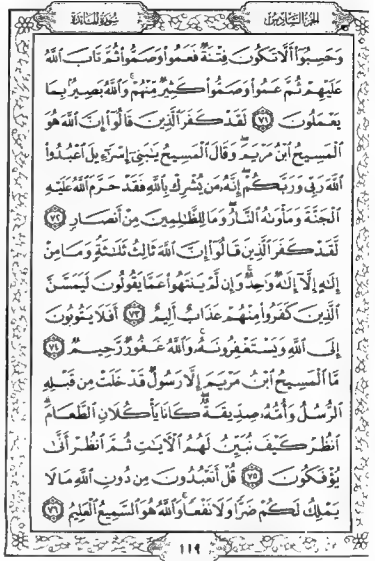 الجزء السادس
سورة المائدة
وَحَسِبُوٓا۟ أَلَّا تَكُونَ فِتْنَةٌ فَعَمُوا۟ وَصَمُّوا۟ ثُمَّ تَابَ ٱللَّهُ
عَلَيْهِمْ ثُمَّ عَمُوا۟ وَصَمُّوا۟ كَثِيرٌ مِّنْهُمْ ۚ وَٱللَّهُ بَصِيرٌۢ بِمَا
يَعْمَلُونَ ٧١ لَقَدْ كَفَرَ ٱلَّذِينَ قَالُوٓا۟ إِنَّ ٱللَّهَ هُوَ
ٱلْمَسِيحُ ٱبْنُ مَرْيَمَ ۖ وَقَالَ ٱلْمَسِيحُ يَٰبَنِىٓ إِسْرَٰٓءِيلَ ٱعْبُدُوا۟
ٱللَّهَ رَبِّى وَرَبَّكُمْ ۖ إِنَّهُۥ مَن يُشْرِكْ بِٱللَّهِ فَقَدْ حَرَّمَ ٱللَّهُ عَلَيْهِ
ٱلْجَنَّةَ وَمَأْوَىٰهُ ٱلنَّارُ ۖ وَمَا لِلظَّٰلِمِينَ مِنْ أَنصَارٍ ٧٢
لَّقَدْ كَفَرَ ٱلَّذِينَ قَالُوٓا۟ إِنَّ ٱللَّهَ ثَالِثُ ثَلَٰثَةٍ ۘ وَمَا مِنْ
إِلَٰهٍ إِلَّآ إِلَٰهٌ وَٰحِدٌ ۚ وَإِن لَّمْ يَنتَهُوا۟ عَمَّا يَقُولُونَ لَيَمَسَّنَّ
ٱلَّذِينَ كَفَرُوا۟ مِنْهُمْ عَذَابٌ أَلِيمٌ ٧٣ أَفَلَا يَتُوبُونَ
إِلَى ٱللَّهِ وَيَسْتَغْفِرُونَهُۥ ۚ وَٱللَّهُ غَفُورٌ رَّحِيمٌ ٧٤
مَّا ٱلْمَسِيحُ ٱبْنُ مَرْيَمَ إِلَّا رَسُولٌ قَدْ خَلَتْ مِن قَبْلِهِ
ٱلرُّسُلُ وَأُمُّهُۥ صِدِّيقَةٌ ۖ كَانَا يَأْكُلَانِ ٱلطَّعَامَ ۗ
ٱنظُرْ كَيْفَ نُبَيِّنُ لَهُمُ ٱلْءَايَٰتِ ثُمَّ ٱنظُرْ أَنَّىٰ
يُؤْفَكُونَ ٧٥ قُلْ أَتَعْبُدُونَ مِن دُونِ ٱللَّهِ مَا لَا
يَمْلِكُ لَكُمْ ضَرًّا وَلَا نَفْعًا ۚ وَٱللَّهُ هُوَ ٱلسَّمِيعُ ٱلْعَلِيمُ ٧٦
١١٩